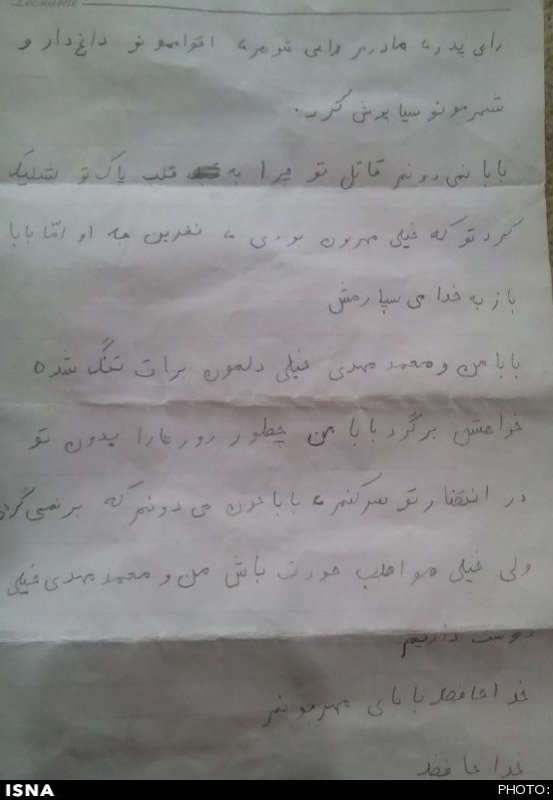 Leonardo
رای پدر، مادرم برای شوهر، اقواممونو داغ‌دار و
شهرمونو سیا پوش کرد.
بابا نمی دونم قاتل تو چرا به قلب پاک تو شلیک
کرد تو که خیلی مهربون بودی، نفرین به او امّا بابا
باز به خدا می سپارمش
بابا من و محمد مهدی خیلی دلمون برات تنگ شده
خواهش برگرد بابا من چطور روزها را بدون تو
در انتظار تو سر کنم، بابا جون می دونم که بر نمی گردی
ولی خیلی مواظب خودت باش من و محمد مهدی خیلی
دوست داریم.
خدا حافظ بابای مهربونم
خدا حافظ
ISNA
PHOTO: